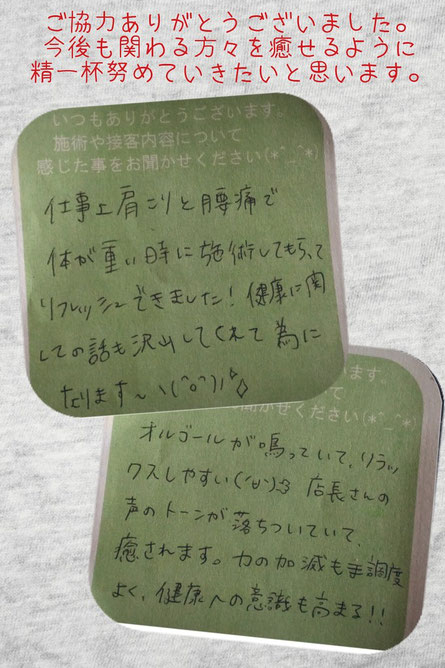 ご協力ありがとうございました。
今後も関わる方々を癒せるように
精一杯努めていきたいと思います。
いつもありがとうございます。
施術や接客内容について
感じた事をお聞かせください(*^_^*)
仕事上肩こりと腰痛で
体が重い時に施術してもらって
リフレッシュできました!健康に関
しての話も沢山してくれて為に
なります~ヽ(^o^)丿
ます。
て
かせください(*^_^*)
オルゴールが鳴っていて、リラッ
クスしやすい('∀')3 店長さんの
声のトーンが落ちついていて、
癒されます。力の加減も調度
よく、健康への意識も高まる!!